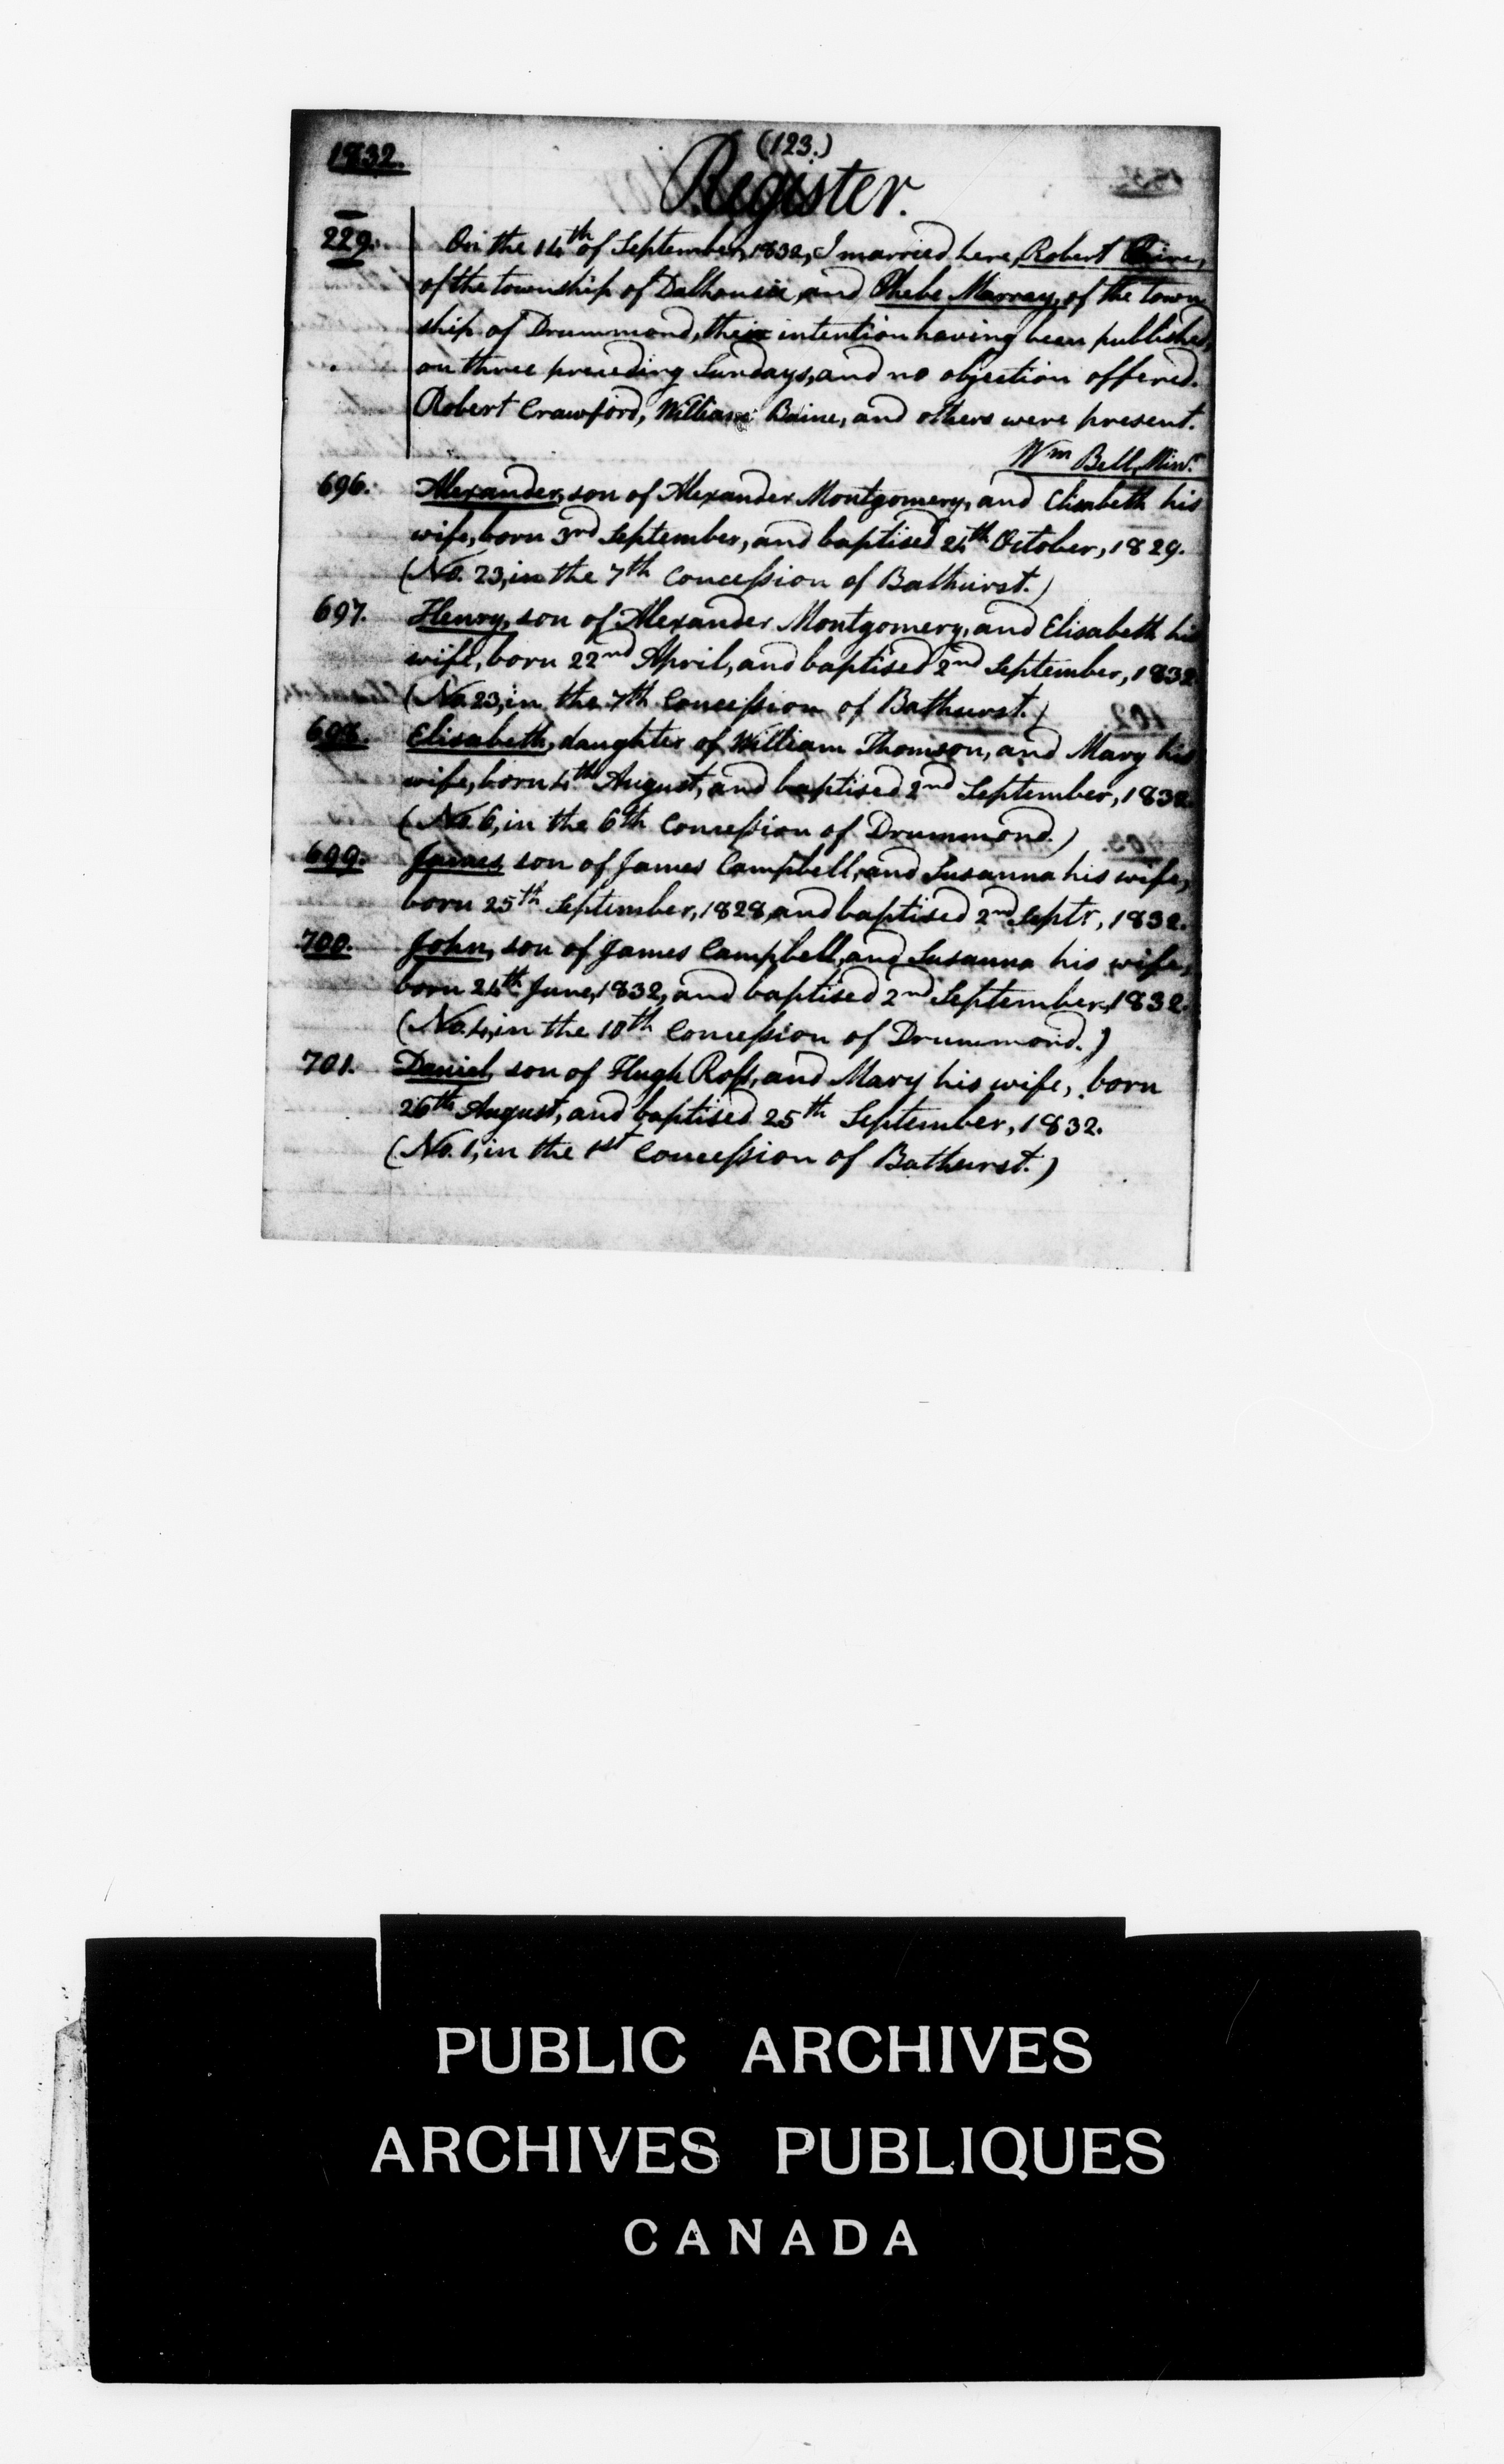 (123.)
1832. Register.
229. On the 14th of September, 1832, I married here, Robert
of the township of Dalhousie, and Phebe Murray, of the town
ship of Drummond, their intention having been published,
on three preceding Sundays, and no objection offered.
Robert Crawford, William Baine, and others were present.
Wm Bell, Minr.
696. Alexander, son of Alexander Montgomery, and Elisabeth his
wife, born 3rd September, and baptised 24th October, 1829.
(No. 23, in the 7th Concession of Bathurst.)
697. Henry, son of Alexander Montgomery, and Elisabeth his
wife, born 22nd April, and baptised 2nd September, 1832
(No. 23, in the 7th Concession of Bathurst.)
698. Elisabeth, daughter of William Thomson, and Mary his
wife, born 4th August, and baptised 2nd September, 1832.
(No. 6, in the 6th Concession of Drummond.)
699. James son of James Campbell, and Susanna his wife,
born 25th September, 1828, and baptised 2nd Septr, 1832.
700. John, son of James Campbell, and Susanna his wife,
born 24th June, 1832, and baptised 2nd September, 1832.
(No. 4, in the 10th Concession of Drummond.)
701. Daniel, son of Hugh Ross, and Mary his wife, born
26th August, and baptised 25th September, 1832.
(No. 1, in the 1st Concession of Bathurst.)
PUBLIC ARCHIVES
ARCHIVES PUBLIQUES
CANADA